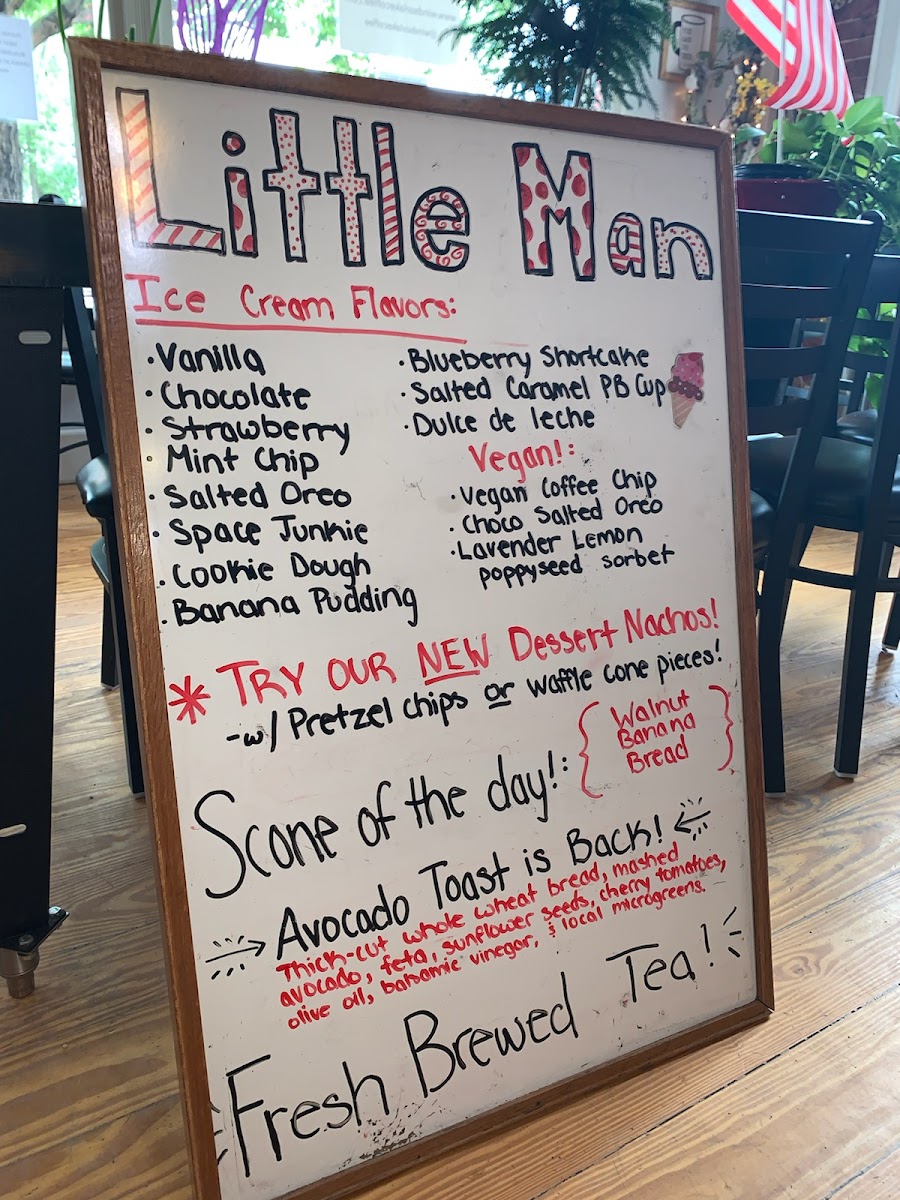 Little Man
Ice Cream Flavors:
• Vanilla
• Chocolate
• Strawberry
• Mint Chip
• Salted Oreo
• Space Junkie
• Cookie Dough
• Banana Pudding
• Blueberry Shortcake
• Salted Caramel PB Cup
• Dulce de leche
Vegan!:
• Vegan Coffee Chip
• Choco Salted Oreo
• Lavender Lemon
poppyseed sorbet
* TRY OUR NEW Dessert Nachos!
-w/ Pretzel chips or waffle cone pieces!
Scone of the day!:
{ Walnut
Banana
Bread }
Avocado Toast is Back!
Thick-cut whole wheat bread, mashed
avocado, feta, sunflower seeds, cherry tomatoes,
olive oil, balsamic vinegar, & local microgreens.
Fresh Brewed Tea!